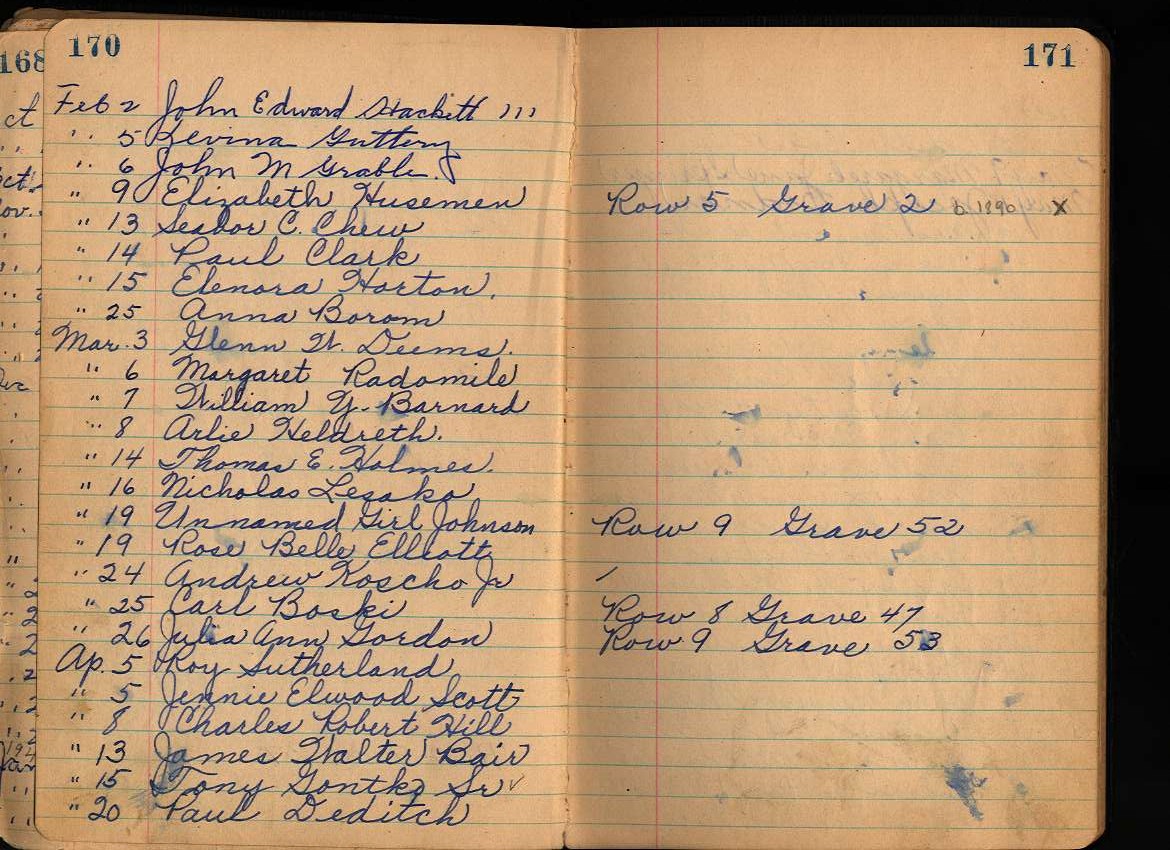 168 170 171
Feb 2 John Edward Hackett III
" 5 Levina Guttery
" 6 John M Grable
" 9 Elizabeth Husemen Row 5 Grave 2 b. 1890 x
" 13 Seabor C. Chew
" 14 Paul Clark
" 15 Elenora Horton.
" 25 Anna Borom
Mar. 3 Glenn W. Deems.
" 6 Margaret Radomile
" 7 William Y. Barnard
" 8 Arlie Heldreth.
" 14 Thomas E. Holmes.
" 16 Nicholas Lesako
" 19 Unnamed Girl Johnson Row 9 Grave 52
" 19 Rose Belle Elliott
" 24 Andrew Koscho Jr
" 25 Carl Boski Row 8 Grave 47
" 26 Julia Ann Gordon Row 9 Grave 53
Ap. 5 Roy Sutherland
" 5 Jennie Elwood Scott
" 8 Charles Robert Hill
" 13 James Walter Bair
" 15 Tony Gontko Sr ✓
" 20 Paul Deditch